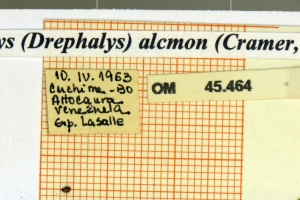 ys (Drephalys) alcmon (Cramer,
10. IV. 1963
Cuchime - BO
Altocaura
Venezuela
Exp. Lasalle
OM 45.464